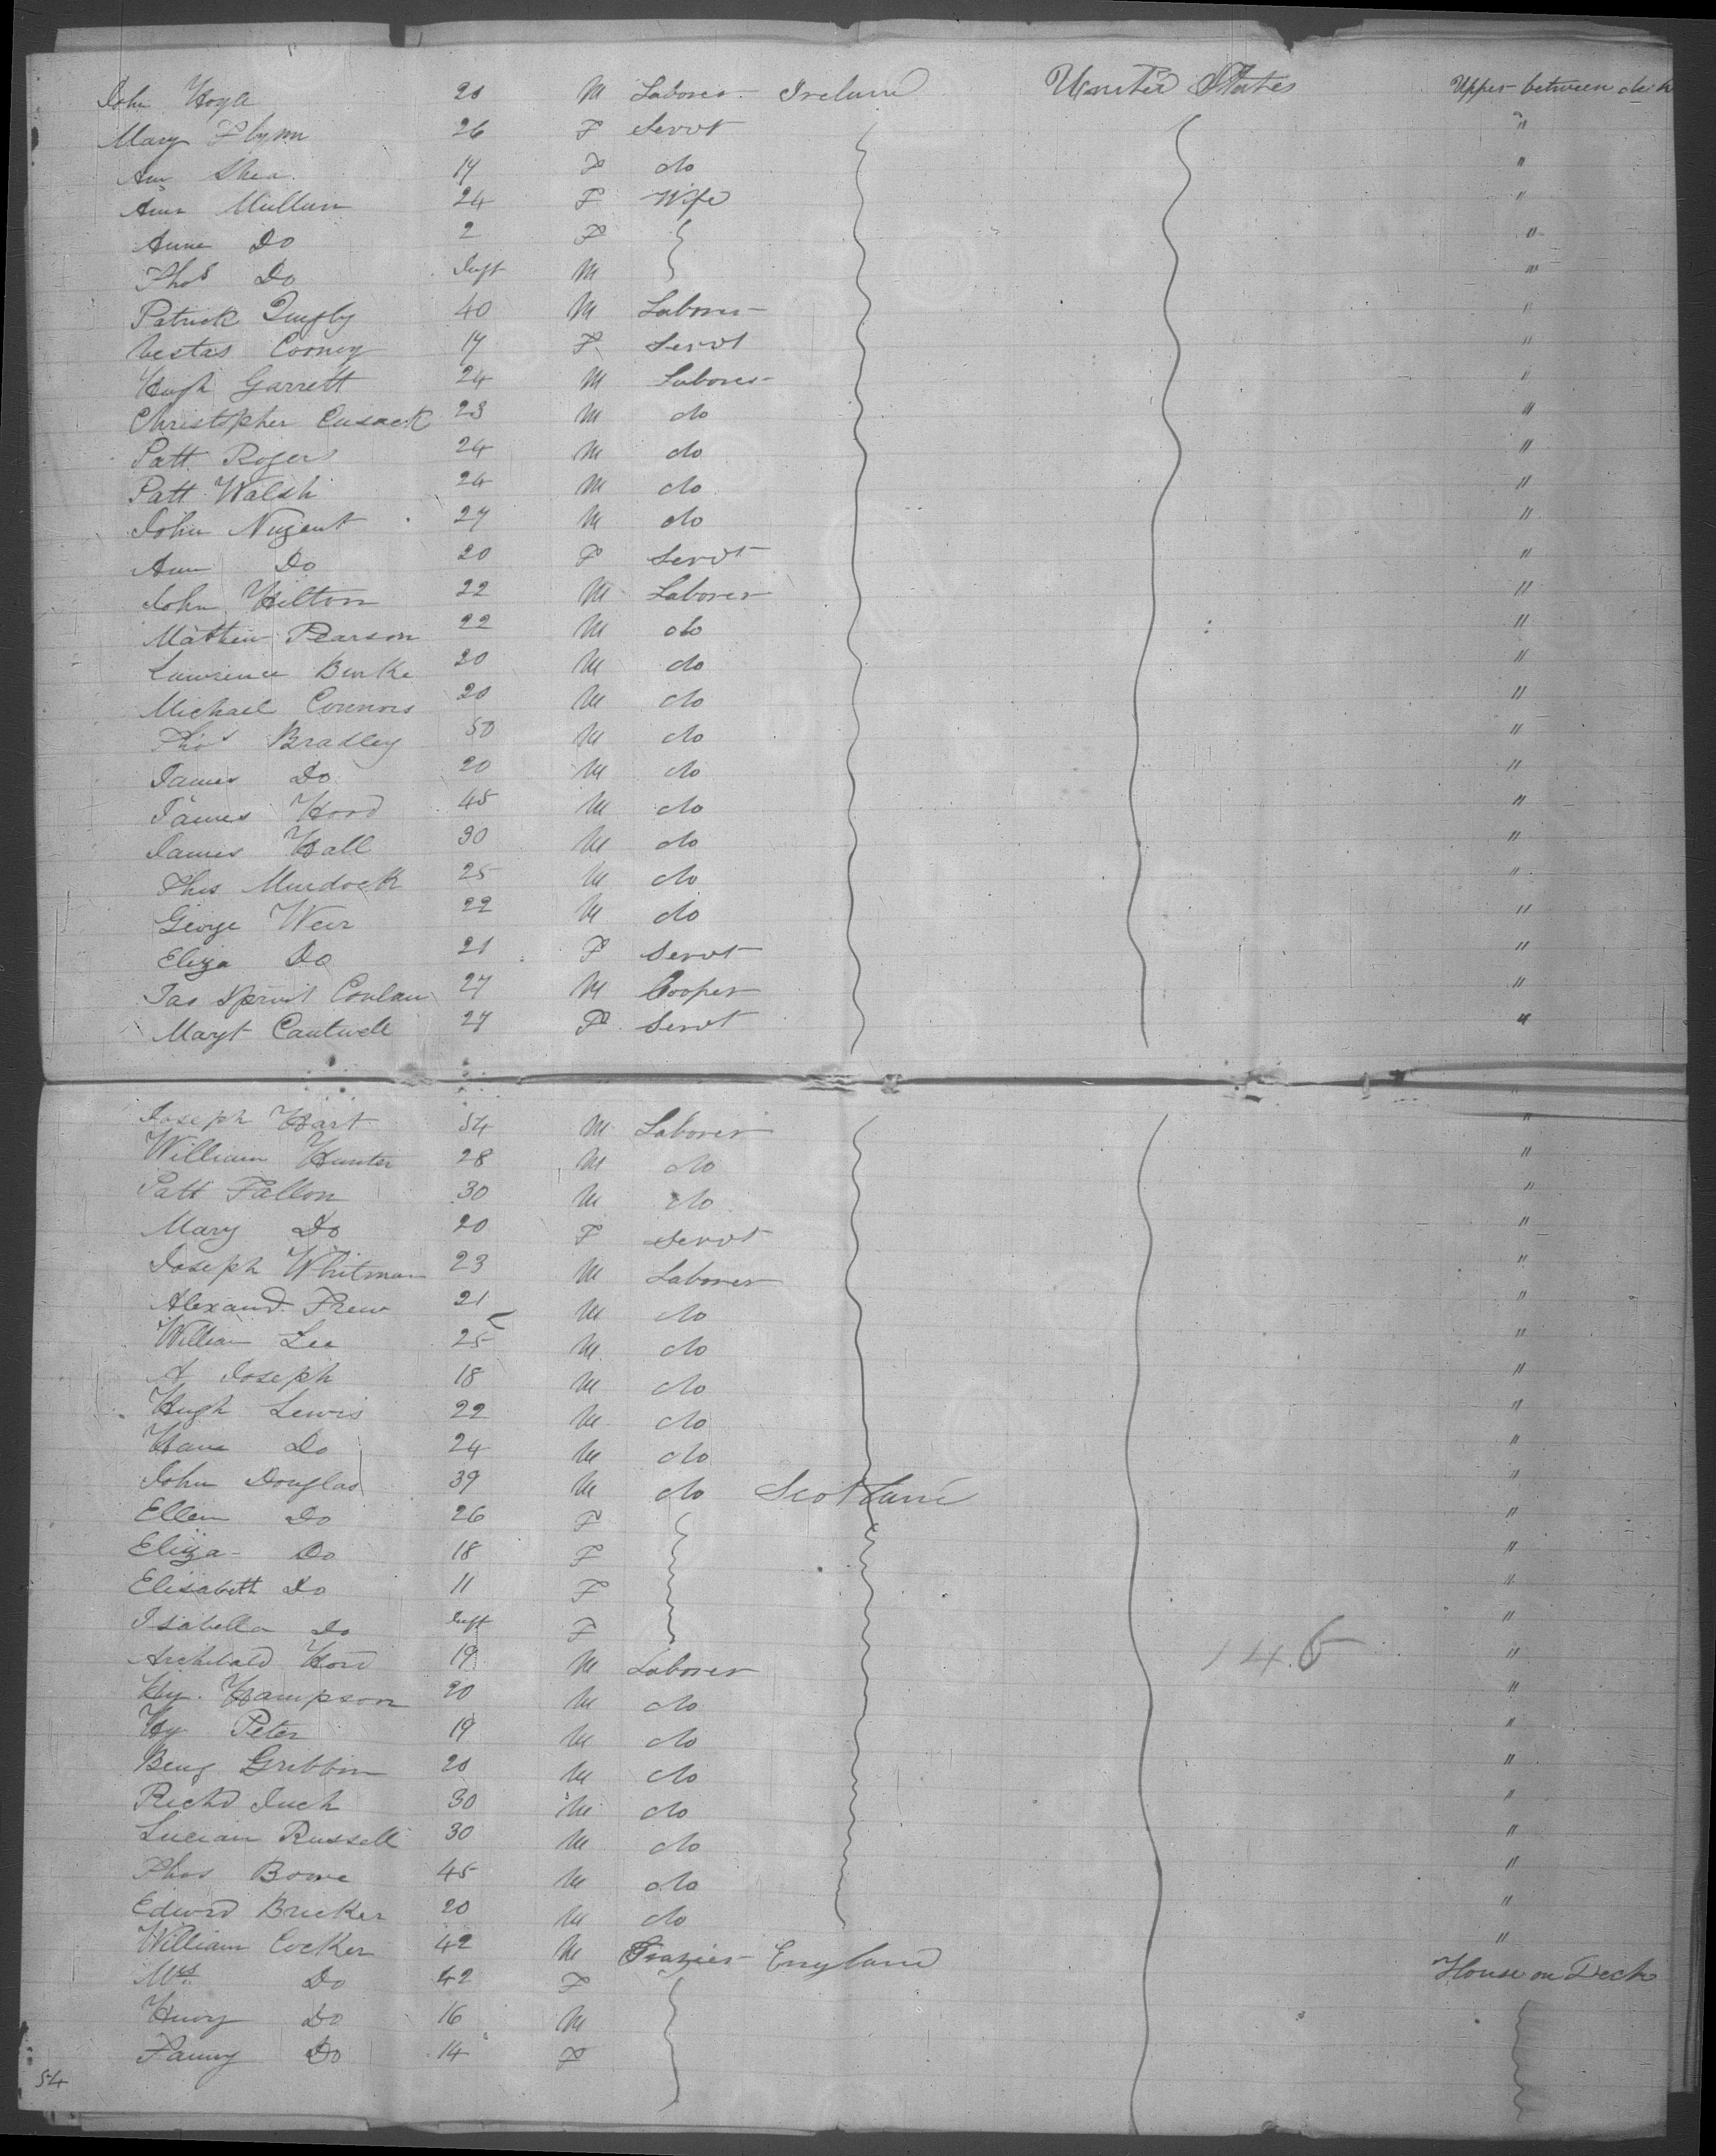 John Hoyle 20 M Laborer Ireland United States Upper between deck
Mary Flynn 26 F Servt "
Ann Shea 17 F do "
Ann Mullin 24 F Wife "
Anne Do 2 F "
Thos Do Inft M "
Patrick Quigly 40 M Laborer "
Cooney 17 F Servt "
Hugh Garrett 24 M Laborer "
Christopher Cusack 23 M do "
Patt Rogers 24 M do "
Patt Walsh 24 M do "
John Nugent 27 M do "
Ann Do 20 F Servt "
John Hilton 22 M Laborer "
Mathew Pearson 22 M do "
Lawrence Burke 20 M do "
Michael Connors 20 M do "
Thos Bradley 50 M do "
James Do 20 M do "
James Hood 45 M do "
James Hall 30 M do "
Thos Murdock 25 M do "
George Weir 22 M do "
Eliza Do 21 F Servt "
Jas Conlan 27 M Cooper "
Margt Cantwell 27 F Servt "
Joseph Hart 54 M Laborer "
William Hunter 28 M do "
Patt Fallon 30 M do "
Mary Do 20 F Servt "
Joseph Whitman 23 M Laborer "
Alexand. Frew 21 M do "
William Lee 25 M do "
A Joseph 18 M do "
Hugh Lewis 22 M do "
Do 24 M do "
John Douglas 39 M do Scotland "
Ellen Do 26 F "
Eliza Do 18 F "
Elisabeth Do 11 F "
Isabella Do Inft F "
Archibald Hood 19 M Laborer 146 "
Hy. Hampson 20 M do "
Hy Peter 19 M do "
Benj Gribbin 20 M do "
Richd 30 M do "
Lucian Russell 30 M do "
Thos Bowe 45 M do "
Edwrd Bricker 20 M do "
William Cocker 42 M Grazier England "
Mrs Do 42 F House on Deck
Henry Do 16 M
Fanny Do 14 F
54